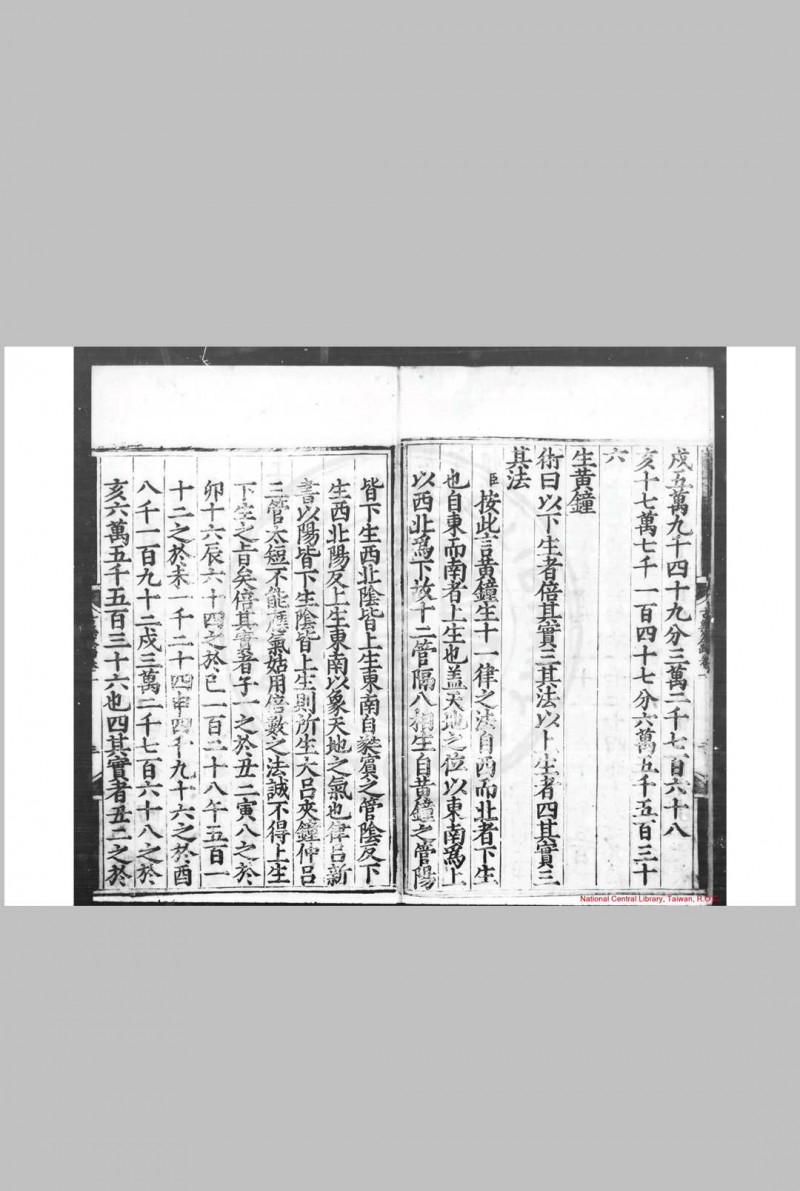 戌五萬九千四十九分三萬二千七百六十八
亥十七萬七千一百四十七分六萬五千五百三十
六
生黃鐘
術曰以下生者倍其實三其法以上生者四其實三
其法
臣按此言黃鐘生十一律之法自西而北者下生
也自東而南者上生也盖天地之位以東南爲上
以西北爲下故十二管隔八相生自黃鐘之管陽
皆下生西北陰皆上生東南自蕤賓之管陰反下
生西北陽反上生東南以象天地之氣也律呂新
書以陽皆下生陰皆上生則所生大呂夾鐘仲呂
三管太短不能應氣姑用倍數之法誠不得上生
下生之旨矣倍其實者子一之於丑二寅八之於
卯十六辰六十四之於巳一百二十八午五百一
十二之於未一千二十四申四千九十六之於酉
八千一百九十二戌三萬二千七百六十八之於
亥六萬五千五百三十六也四其實者丑二之於
National Central Library, Taiwan, R.O.C